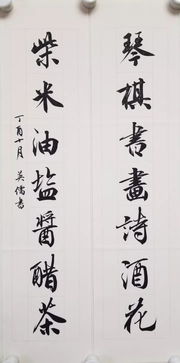 琴棋書畫詩酒花
柴米油盐醬醋茶
丁酉十月 英儒书